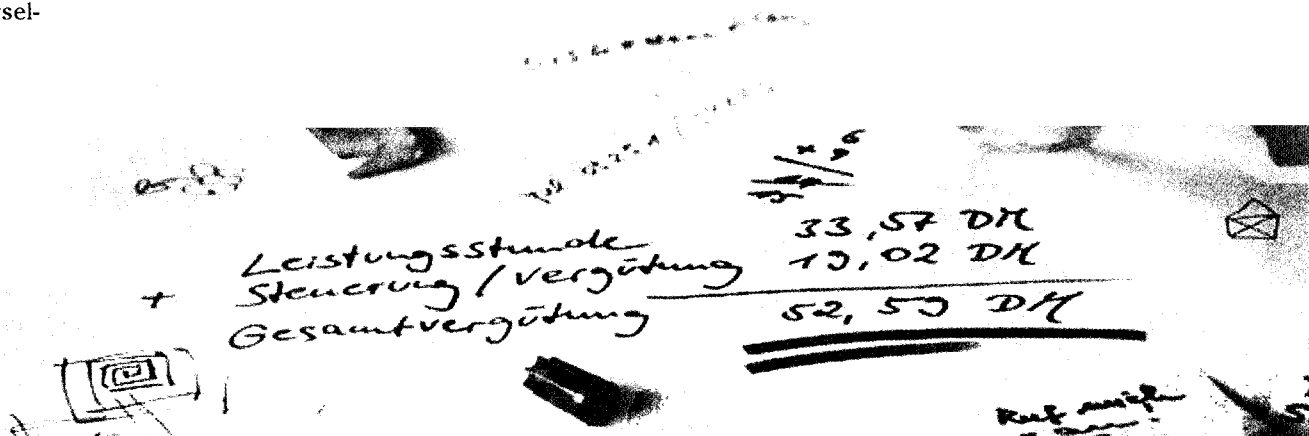 sel-
Leistungsstunde 33,57 DM
+ Steuerung / Vergütung 19,02 DM
Gesamtvergütung 52,59 DM
Ruf mich